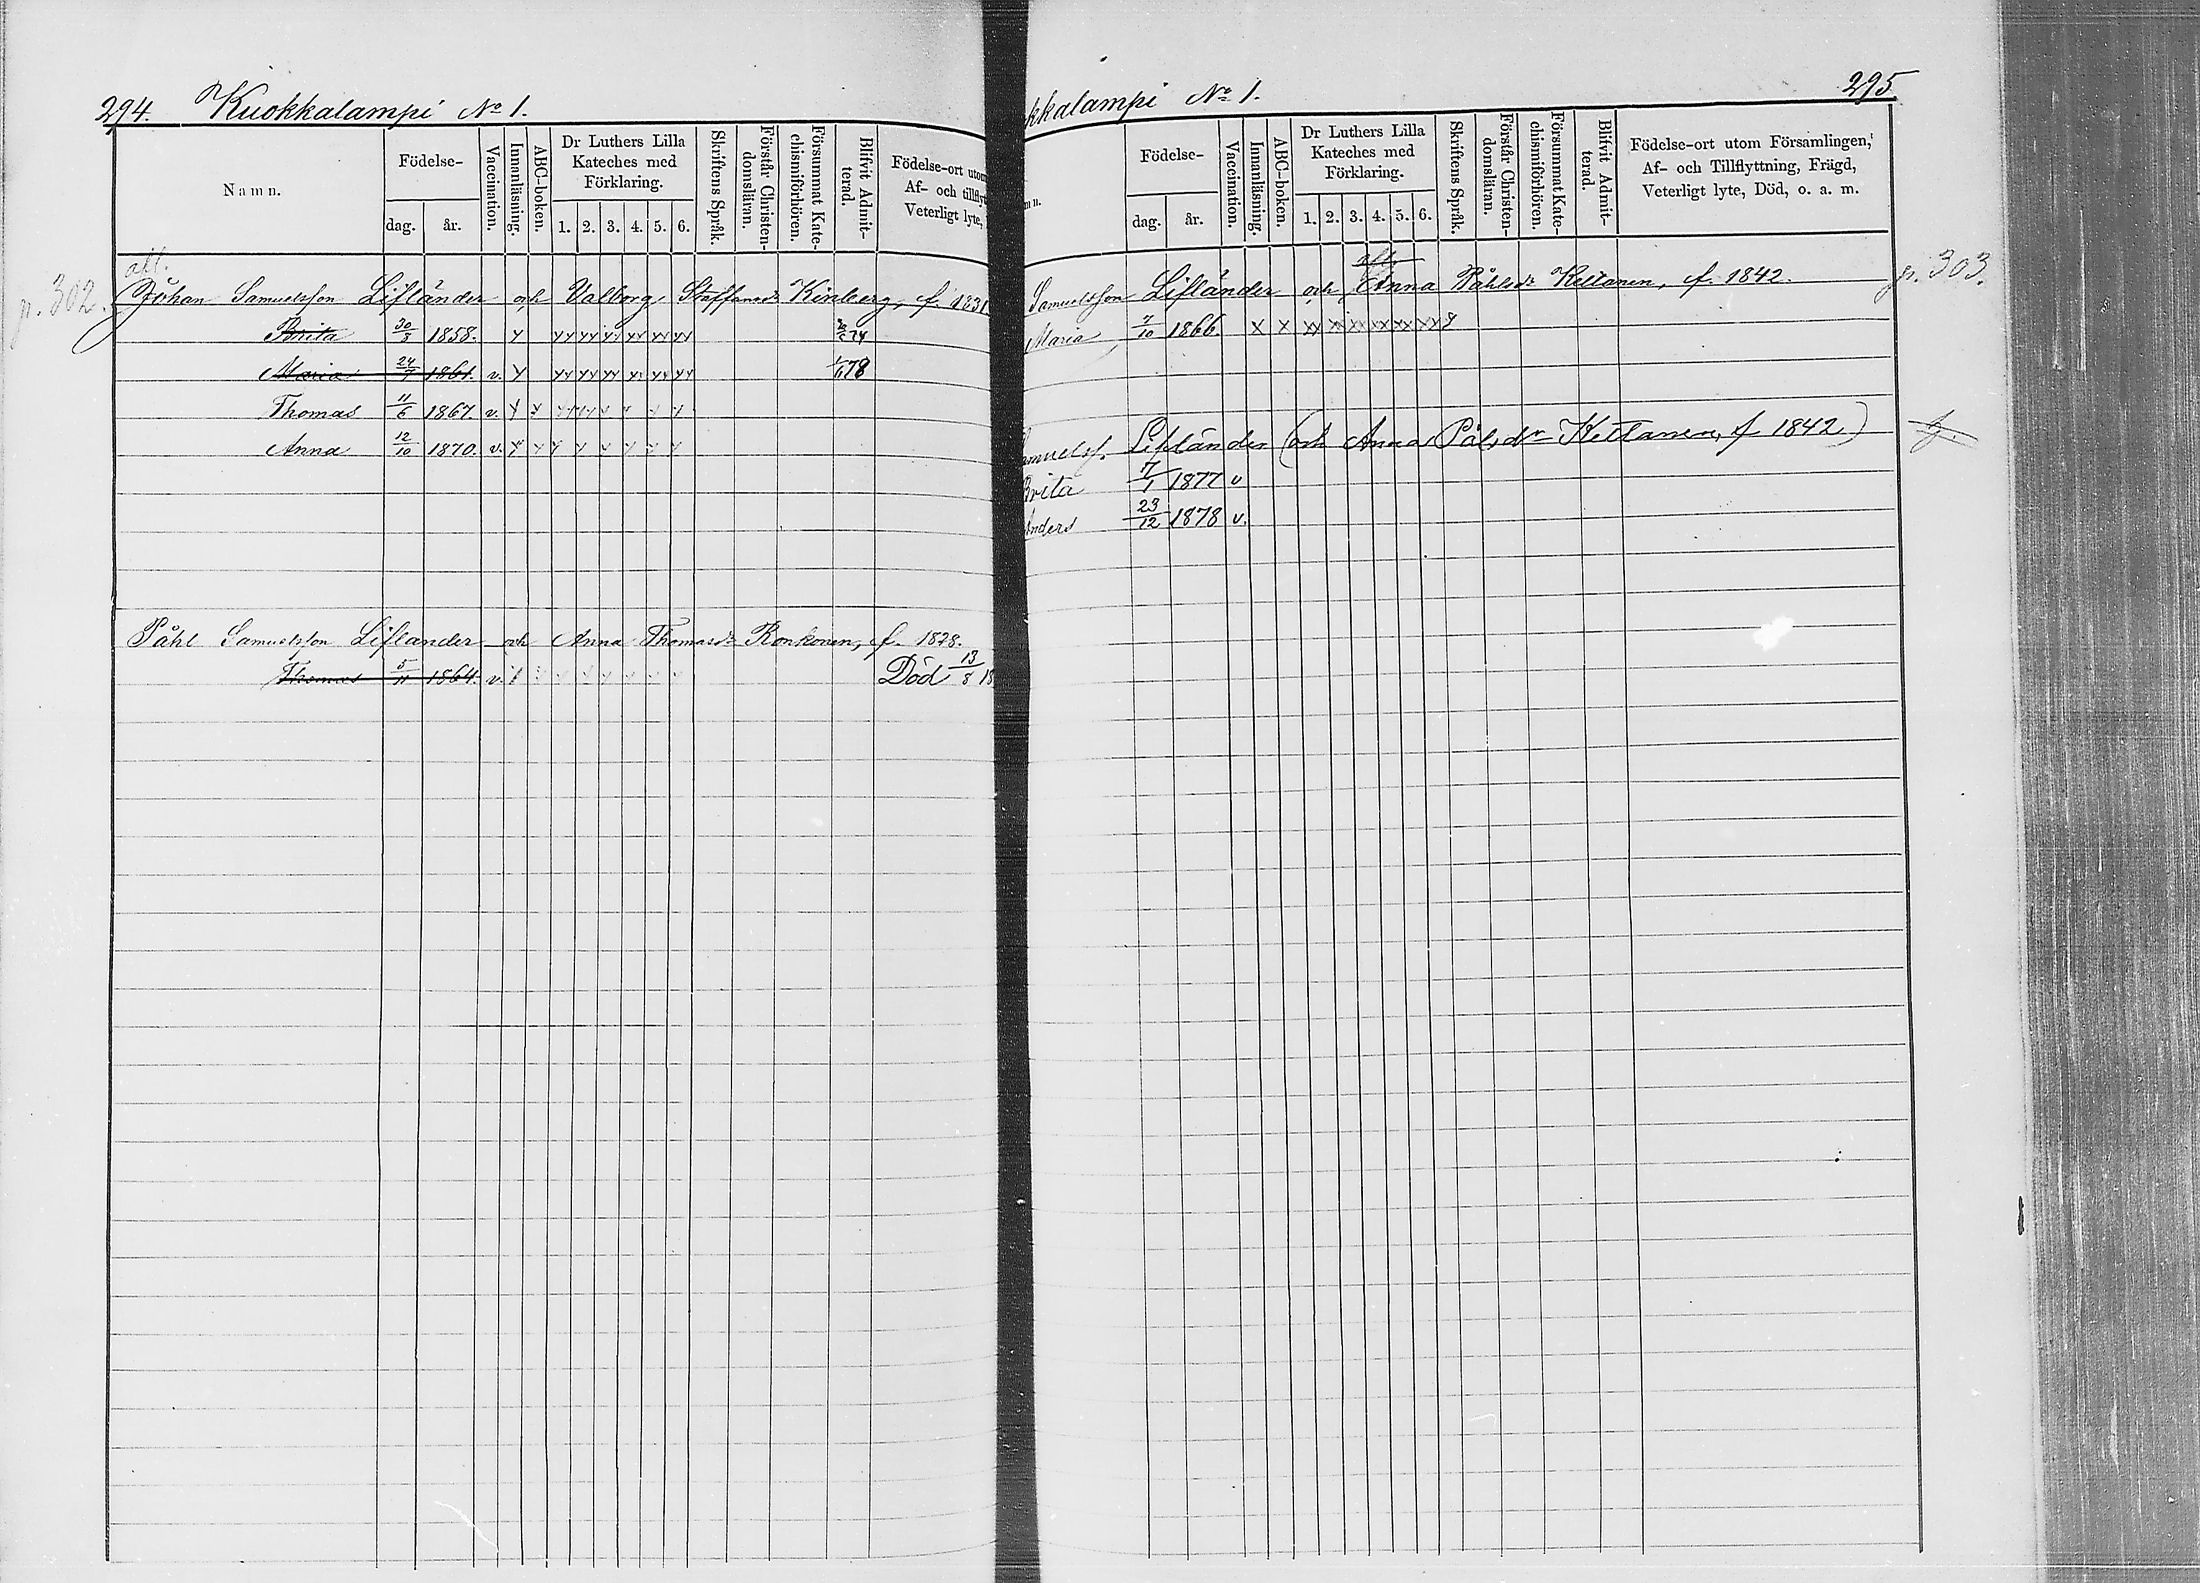 294. Kuokkalampi No 1.
Namn.
Födelse-
dag. år.
Vaccination.
Innanläsning.
ABC-boken.
Dr Luthers Lilla
Kateches med
Förklaring.
1. 2. 3. 4. 5. 6.
Skriftens Språk.
Förstår Christen-
domsläran.
Försummat Kate-
chismiförhören.
Blifvit Admit-
terad.
Födelse-ort utom
Af- och tillflyt
Veterligt lyte,
p. 302.
afl.
Johan Samuelsson Lifländer och Valborg Staffansdr Kinberg, f. 1831
Brita 30/3 1858. y yy yy yy yy yy yy 74
Maria 24/7 1861. v. y yy yy yy yy yy yy 78
Thomas 11/6 1867. v. y y
Anna 12/10 1870. v. y y y y y y y y
Påhl Samuelsson Lifländer och Anna Thomasdr Ronkonen, f. 1828.
Thomas 5/11 1864. v. Död 13/8 18
kkalampi No 1. 295.
mn.
Födelse-
dag. år.
Vaccination.
Innanläsning.
ABC-boken.
Dr Luthers Lilla
Kateches med
Förklaring.
1. 2. 3. 4. 5. 6.
Skriftens Språk.
Förstår Christen-
domsläran.
Försummat Kate-
chismiförhören.
Blifvit Admit-
terad.
Födelse-ort utom Församlingen,
Af- och Tillflyttning, Frägd,
Veterligt lyte, Död, o. a. m.
Samuelsson Lifländer och Anna Påhlsdr Kettanen, f. 1842. p. 303.
Maria 7/10 1866. x x xx xx xx xx xx xx
amuelss. Lifländer (och Anna Pålsdr Kettanen, f 1842.)
Brita 7/1 1877 v
Anders 23/12 1878 v.